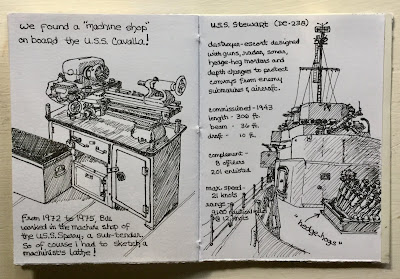 we found a "machine shop"
on board the U.S.S. Cavalla!
From 1972 to 1975, Bds
worked in the machine shop of
the U.S.S. Sperry, a sub-tender.
So of course I had to sketch a
machinist's lathe!
U.S.S. Stewart (DE-238)
destroyer-escort designed
with guns, radar, sonar,
hedge-hog mortars and
depth charges to protect
convoys from enemy
submarines & aircraft.
commissioned - 1943
length - 306 ft.
beam - 36 ft.
draft - 10 ft.
complement -
8 officers
201 enlisted
max. speed -
21 knots
range -
9,100 nautical miles
@ 12 knots
"hedge hogs"